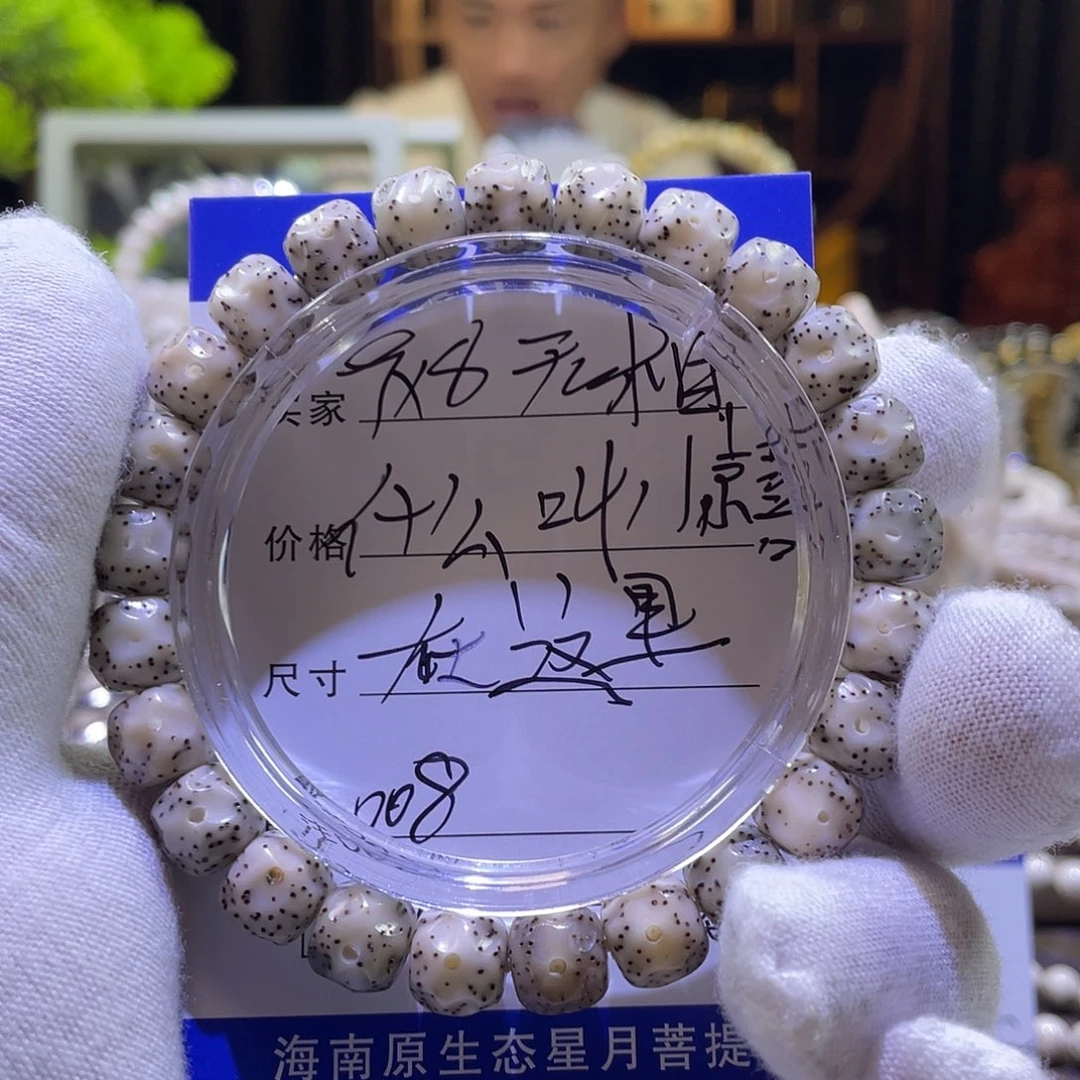 买家 938无相
价格 什么叫惊喜
尺寸 在这里
008
海南原生态星月菩提